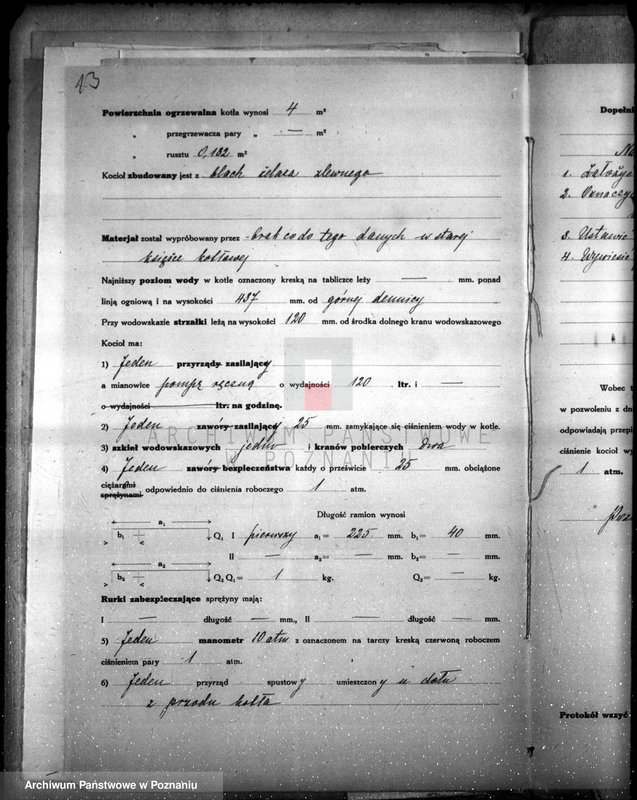 13
Powierzchnia ogrzewalna kotła wynosi 4 m²
„ przegrzewacza pary „ — m²
„ rusztu 0,182 m²
Kocioł zbudowany jest z blach żelaza zlewnego
Materjał został wypróbowany przez brak co do tego danych w starej
książce kotłowej
Najniższy poziom wody w kotle oznaczony kreską na tabliczce leży — mm. ponad
linją ogniową i na wysokości 437 mm. od górnej dennicy
Przy wodowskazie strzałki leżą na wysokości 120 mm. od środka dolnego kranu wodowskazowego
Kocioł ma:
1) Jeden przyrządy zasilający
a mianowicie pompę ręczną o wydajności 120 ltr. i —
o wydajności ltr. na godzinę.
2) Jeden zawory zasilający 25 mm. zamykające się ciśnieniem wody w kotle.
3) szkieł wodowskazowych jedno i kranów pobierczych dwa
4) Jeden zawory bezpieczeństwa każdy o prześwicie 25 mm. obciążone
ciężarami
sprężynami, odpowiednio do ciśnienia roboczego 1 atm.
Długość ramion wynosi
a₁
b₁ Q₁ I pierwszy a₁= 225 mm. b₁= 40 mm.
II — a₂= — mm. b₂= — mm.
a₂
b₂ Q₂ Q₁= 1 kg. Q₂= — kg.
Rurki zabezpieczające sprężyny mają:
I — długość — mm., II — długość — mm.
5) Jeden manometr 10 atm z oznaczonem na tarczy kreską czerwoną roboczem
ciśnieniem pary 1 atm.
6) Jeden przyrząd spustowy umieszczony u dołu
z przodu kotła
ARCHIWUM PAŃSTWOWE
W POZNANIU
Dopełni
Na
1. Założyć
2. Oznaczyć
3. Ustawić
4. Wywiesić
Wobec
w pozwoleniu z dn
odpowiadają przepi
ciśnienie kocioł wy
1 atm.
Poz
Protokół wszyć
Archiwum Państwowe w Poznaniu